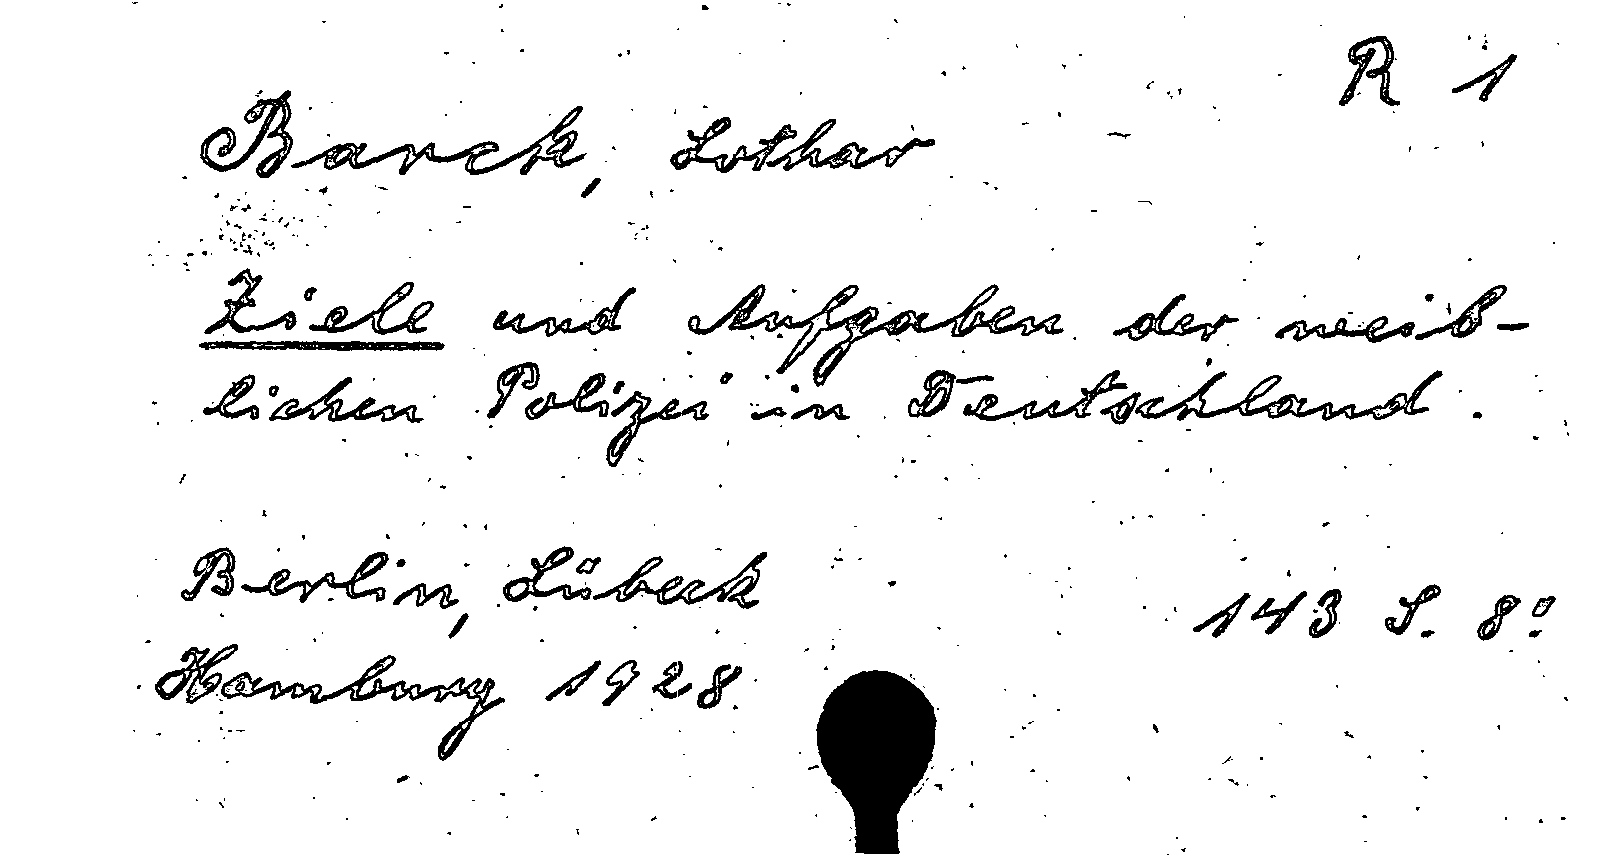 R 1
Barck, Lothar
Ziele und Aufgaben der weib-
lichen Polizei in Deutschland.
Berlin, Lübeck
143 S. 8°
Hamburg 1928